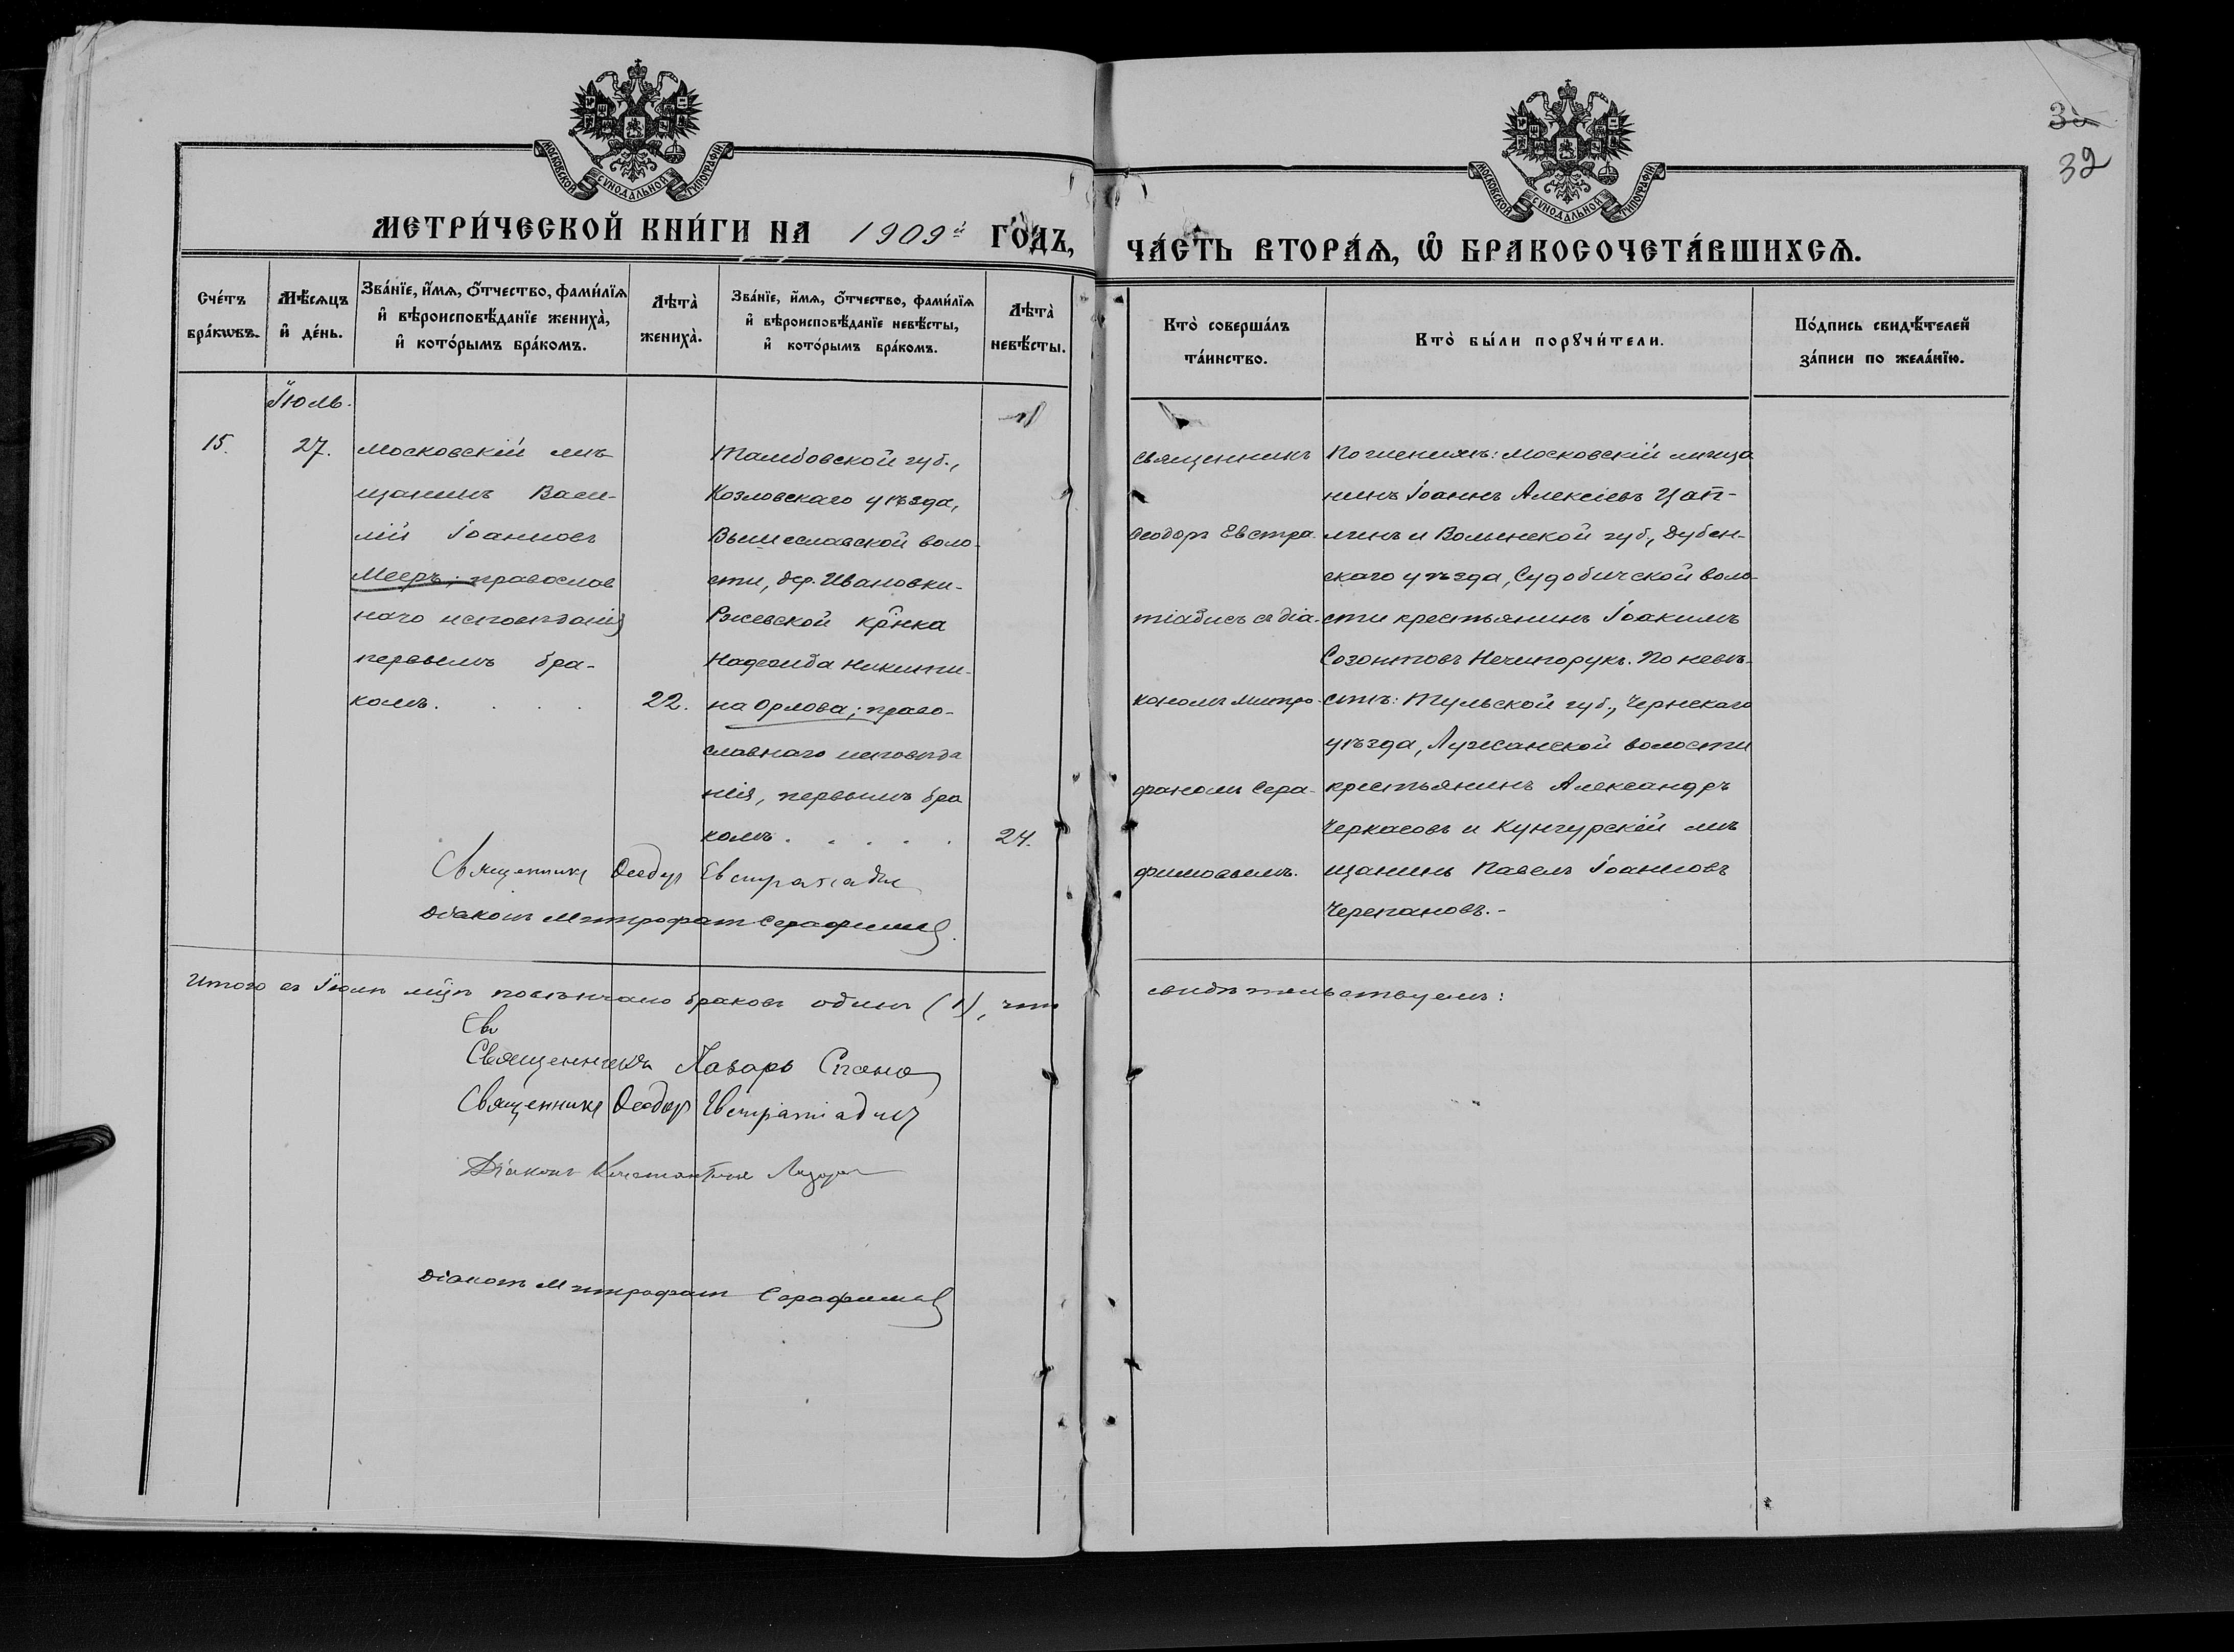 МОСКОВСКОЙ СѴНОДАЛЬНОЙ ТИПОГРАФІИ
МЕТРИ́ЧЕСКОЙ КНИ́ГИ НА 1909й ГО́ДЪ,
Сче́тъ бра́кωвъ.
Мѣ́сѧцъ и҆ де́нь.
Зва́нїе, и҆́мѧ, ѻ҆́тчество, фами́лїѧ
и҆ вѣроисповѣ́данїе женихà,
и҆ кото́рымъ бра́комъ.
Лѣтà женихà.
Зва́нїе, и҆́мѧ, ѻ҆́тчество, фами́лїѧ
и҆ вѣроисповѣ́данїе невѣ́сты,
и҆ кото́рымъ бра́комъ.
Лѣтà невѣ́сты.
Іюль.
15.
27.
Московскій мѣ
щанинъ Васи-
лій Іоанновъ
Мееръ; православ
наго исповѣданія
первымъ бра-
комъ. . . .
22.
Тамбовской губ.,
Козловскаго уѣзда,
Вышеславской воло-
сти, дер. Ивановки-
Ржевской кр̑нка
Надежда Никити-
на Орлова; право-
славнаго исповѣда
нія, первымъ бра
комъ. . . . .
24.
Священникъ Ѳеодоръ Евстратіадис
Діаконъ Митрофанъ Серафимов.
Итого въ Іюлѣ мцѣ повѣнчано браковъ одинъ (1), что
Св
Священникъ Лазарь
Священникъ Ѳеодоръ Евстратіадис
Діаконъ Константинъ
Діаконъ Митрофанъ Серафимов
МОСКОВСКОЙ СѴНОДАЛЬНОЙ ТИПОГРАФІИ
32
ЧА́СТЬ ВТОРА́Ѧ, Ѽ БРАКОСОЧЕТА́ВШИХСѦ.
Ктò соверша́лъ
та́инство.
Ктò бы́ли порꙋчи́тели.
По́дпись свидѣ́телей
за́писи по жела́нїю.
Священникъ
Ѳеодоръ Евстра-
тіадисъ съ діа-
кономъ Митро-
фаномъ Сера-
фимовымъ.
По женихѣ: Московскій мѣща
нинъ Іоаннъ Алексіевъ Цап-
линъ и Волынской губ., Дубен-
скаго уѣзда, Судобичской воло-
сти крестьянинъ Іоакимъ
Созонтовъ Нечипорукъ. По невѣ-
стѣ: Тульской губ., Чернскаго
уѣзда, Лужанской волости
крестьянинъ Александръ
Черкасовъ и Кунгурскій мѣ
щанинъ Павелъ Іоанновъ
Черепановъ.-
свидѣтельствуемъ: